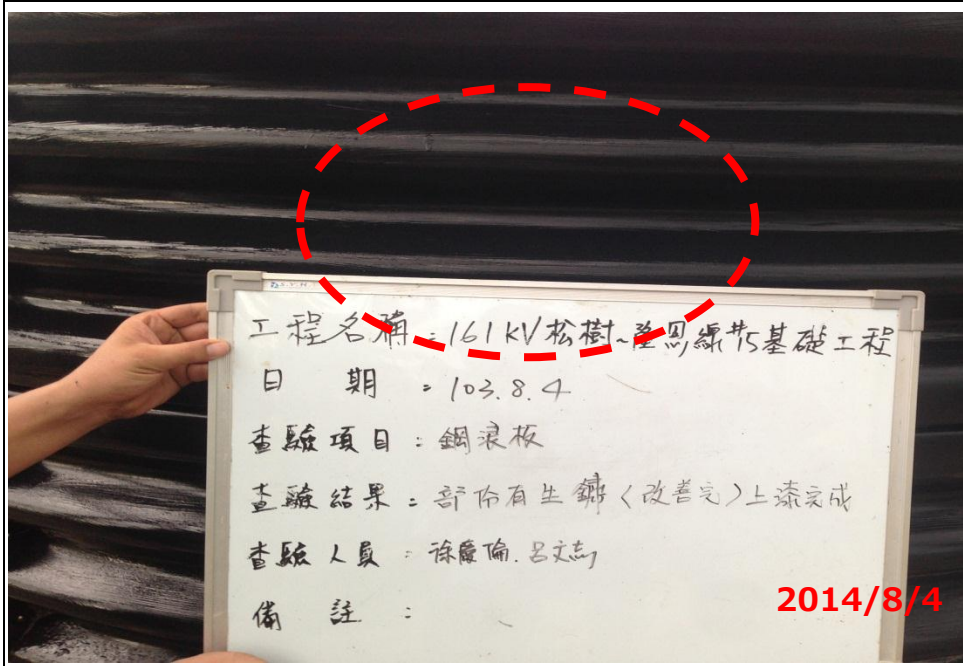 工程名稱：161KV松樹~隆恩線#15基礎工程
日期：103.8.4
查驗項目：鋼浪板
查驗結果：部份有生鏽〈改善完〉上漆完成
查驗人員：徐慶倫.呂文志
備註：
2014/8/4